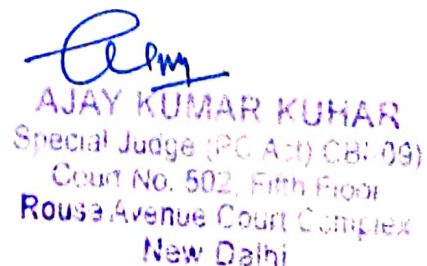 AJAY KUMAR KUHAR
Special Judge (PC Act) CBI-09)
Court No. 502, Fifth Floor
Rouse Avenue Court Complex
New Delhi